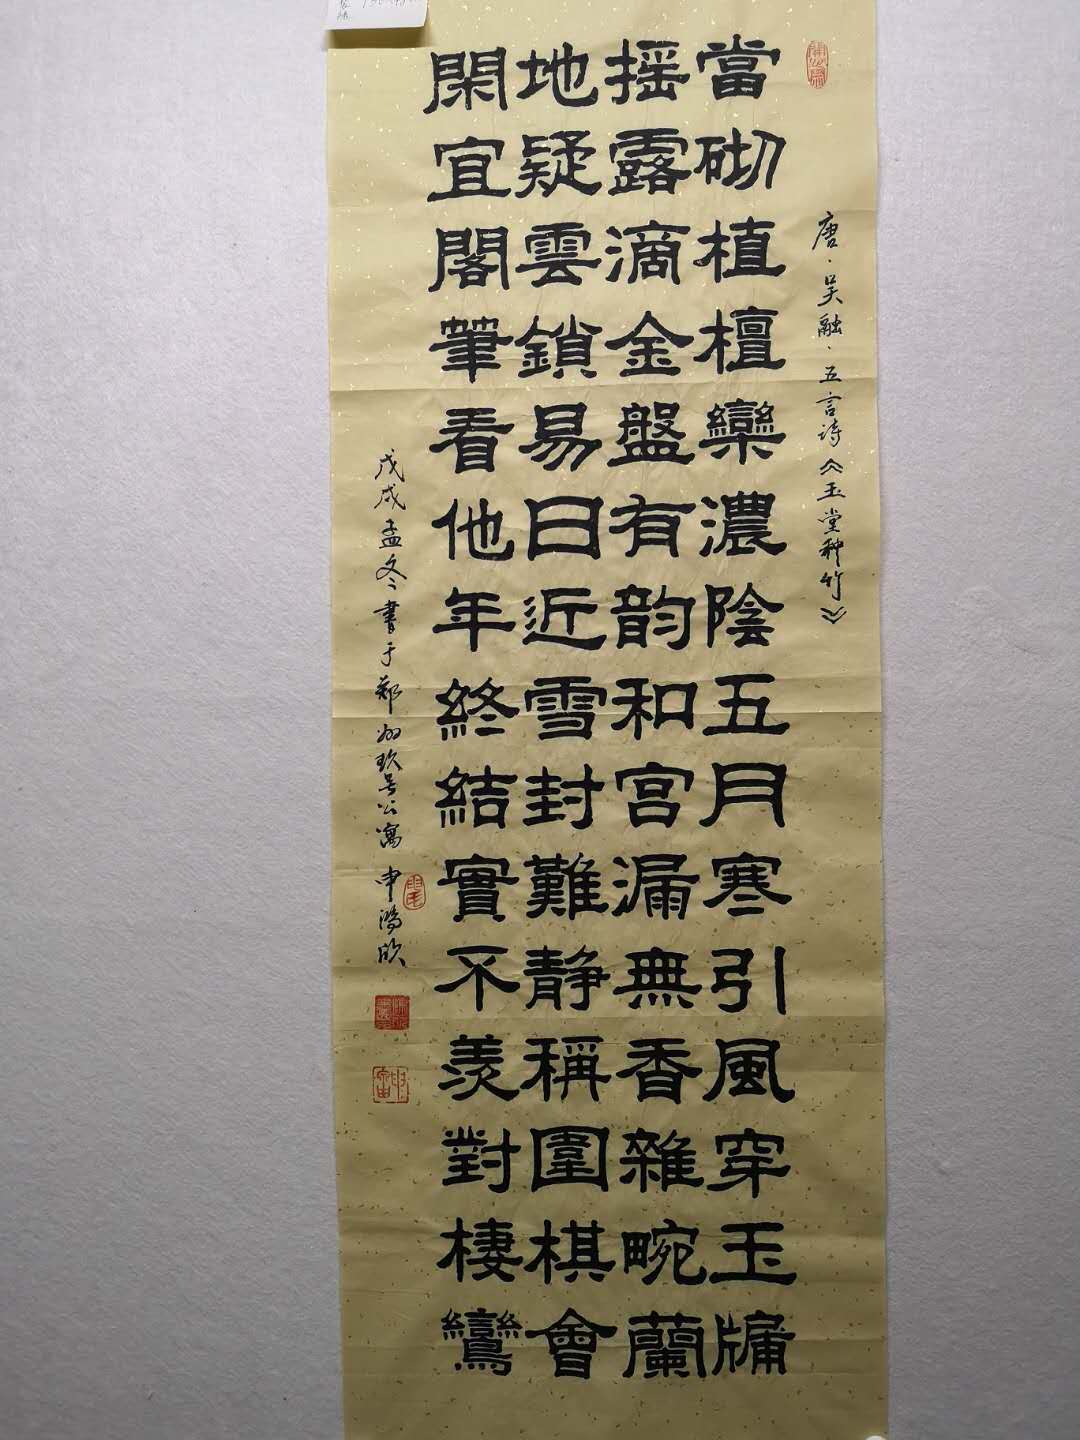 唐·吴融·五言诗《玉堂种竹》
當砌植檀欒濃陰五月寒引風穿玉牖
搖露滴金盤有韵和宮漏無香雜畹蘭
地疑雲鎖易日近雪封難静稱圍棋會
閑宜閣筆看他年終結實不羨對棲鸞
戊戌孟冬書于鄭州玖号公寓 申鴻欣